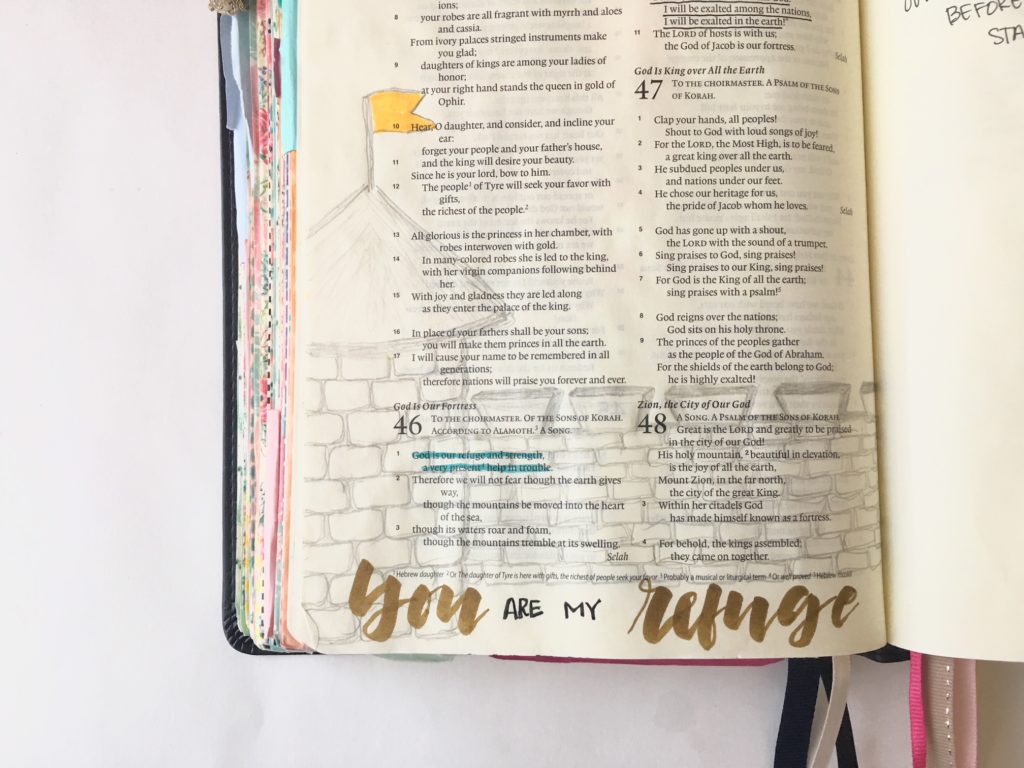 ions;
8 your robes are all fragrant with myrrh and aloes
and cassia.
From ivory palaces stringed instruments make
you glad;
9 daughters of kings are among your ladies of
honor;
at your right hand stands the queen in gold of
Ophir.
10 Hear, O daughter, and consider, and incline your
ear:
forget your people and your father's house,
11 and the king will desire your beauty.
Since he is your lord, bow to him.
12 The people¹ of Tyre will seek your favor with
gifts,
the richest of the people.²
13 All glorious is the princess in her chamber, with
robes interwoven with gold.
14 In many-colored robes she is led to the king,
with her virgin companions following behind
her.
15 With joy and gladness they are led along
as they enter the palace of the king.
16 In place of your fathers shall be your sons;
you will make them princes in all the earth.
17 I will cause your name to be remembered in all
generations;
therefore nations will praise you forever and ever.
God Is Our Fortress
46 To the choirmaster. Of the Sons of Korah.
According to Alamoth.³ A Song.
1 God is our refuge and strength,
a very present⁴ help in trouble.
2 Therefore we will not fear though the earth gives
way,
though the mountains be moved into the heart
of the sea,
3 though its waters roar and foam,
though the mountains tremble at its swelling.
Selah
I will be exalted among the nations,
I will be exalted in the earth!"
11 The LORD of hosts is with us;
the God of Jacob is our fortress.
Selah
God Is King over All the Earth
47 To the choirmaster. A Psalm of the Sons
of Korah.
1 Clap your hands, all peoples!
Shout to God with loud songs of joy!
2 For the LORD, the Most High, is to be feared,
a great king over all the earth.
3 He subdued peoples under us,
and nations under our feet.
4 He chose our heritage for us,
the pride of Jacob whom he loves.
Selah
5 God has gone up with a shout,
the LORD with the sound of a trumpet.
6 Sing praises to God, sing praises!
Sing praises to our King, sing praises!
7 For God is the King of all the earth;
sing praises with a psalm!⁵
8 God reigns over the nations;
God sits on his holy throne.
9 The princes of the peoples gather
as the people of the God of Abraham.
For the shields of the earth belong to God;
he is highly exalted!
Zion, the City of Our God
48 A Song. A Psalm of the Sons of Korah.
1 Great is the LORD and greatly to be praised
in the city of our God!
His holy mountain, 2 beautiful in elevation,
is the joy of all the earth,
Mount Zion, in the far north,
the city of the great King.
3 Within her citadels God
has made himself known as a fortress.
4 For behold, the kings assembled;
they came on together.
¹ Hebrew daughter ² Or The daughter of Tyre is here with gifts, the richest of people seek your favor ³ Probably a musical or liturgical term ⁴ Or well proved ⁵ Hebrew maskil
You ARE MY refuge
BEFORE
STA